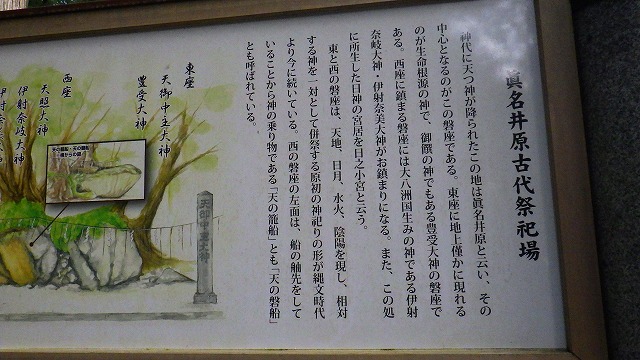 眞名井原古代祭祀場
神代に天つ神が降られたこの地は眞名井原と云い、その
中心となるのがこの磐座である。東座に地上僅かに現れる
のが生命根源の神で、御饌の神でもある豊受大神の磐座で
ある。西座に鎮まる磐座には大八洲国生みの神である伊射
奈岐大神・伊射奈美大神がお鎮まりになる。また、この処
に所生した日神の宮居を日之小宮と云う。
東と西の磐座は、天地、日月、水火、陰陽を現し、相対
する神を一対として併祭する原初の神祀りの形が縄文時代
より今に続いている。西の磐座の左面は、船の舳先をして
いることから神の乗り物である「天の籠船」とも「天の磐船」
とも呼ばれている。
東座
天御中主大神
豊受大神
西座
天照大神
伊射奈岐大神